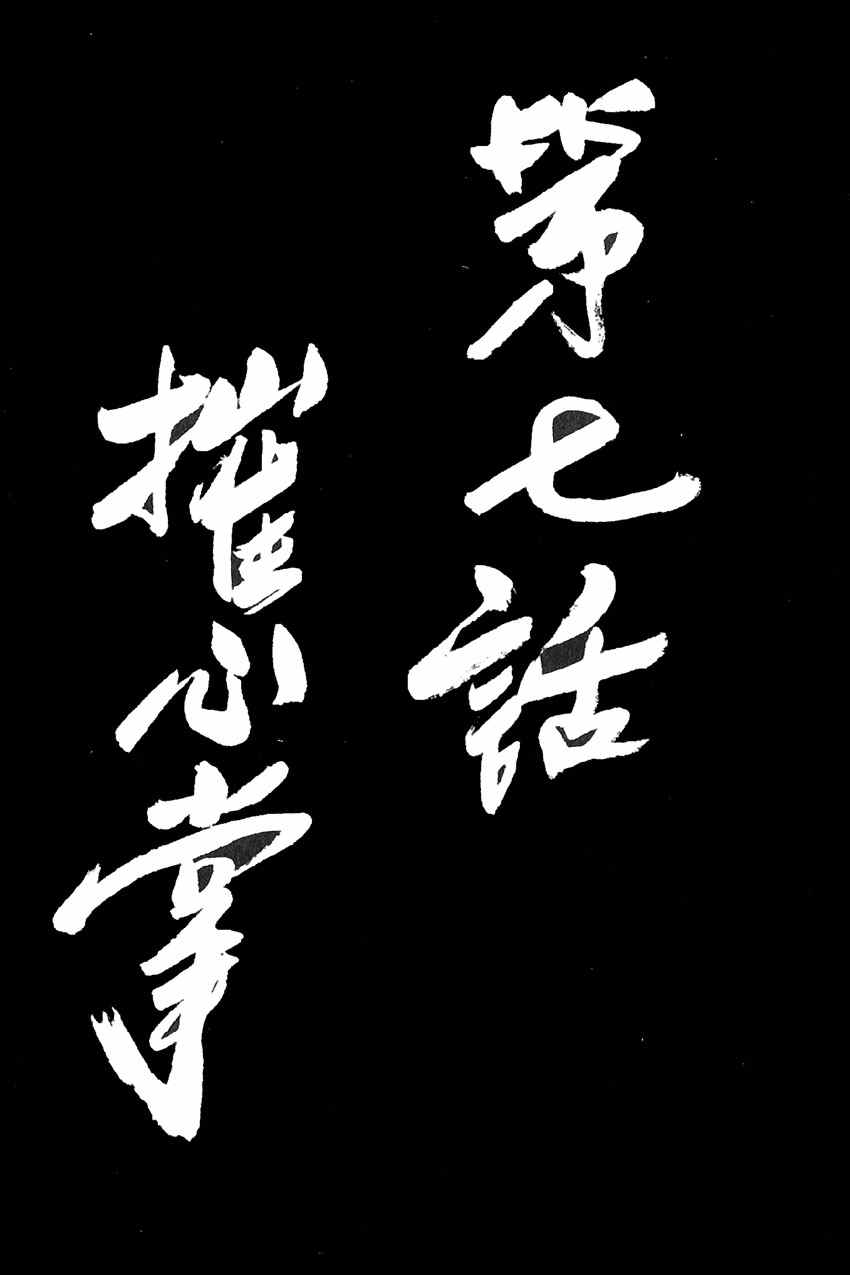 第七話
摧心掌